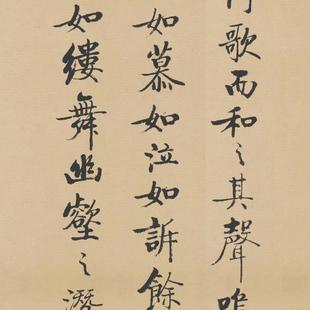 歌而和之其聲
如慕如泣如訴餘
如縷舞幽壑之潛